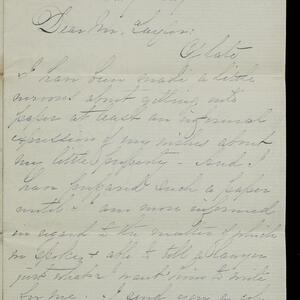 Dear Mr. Taylor:
Of late
I have been made a little
nervous about getting into
paper at least an informal
expression of my wishes about
my little property - And I
have prepared such a paper
until I am more informed
in regard to the matter of which
we spoke & able to tell a lawyer
just what I want him to write
for me. I send you a